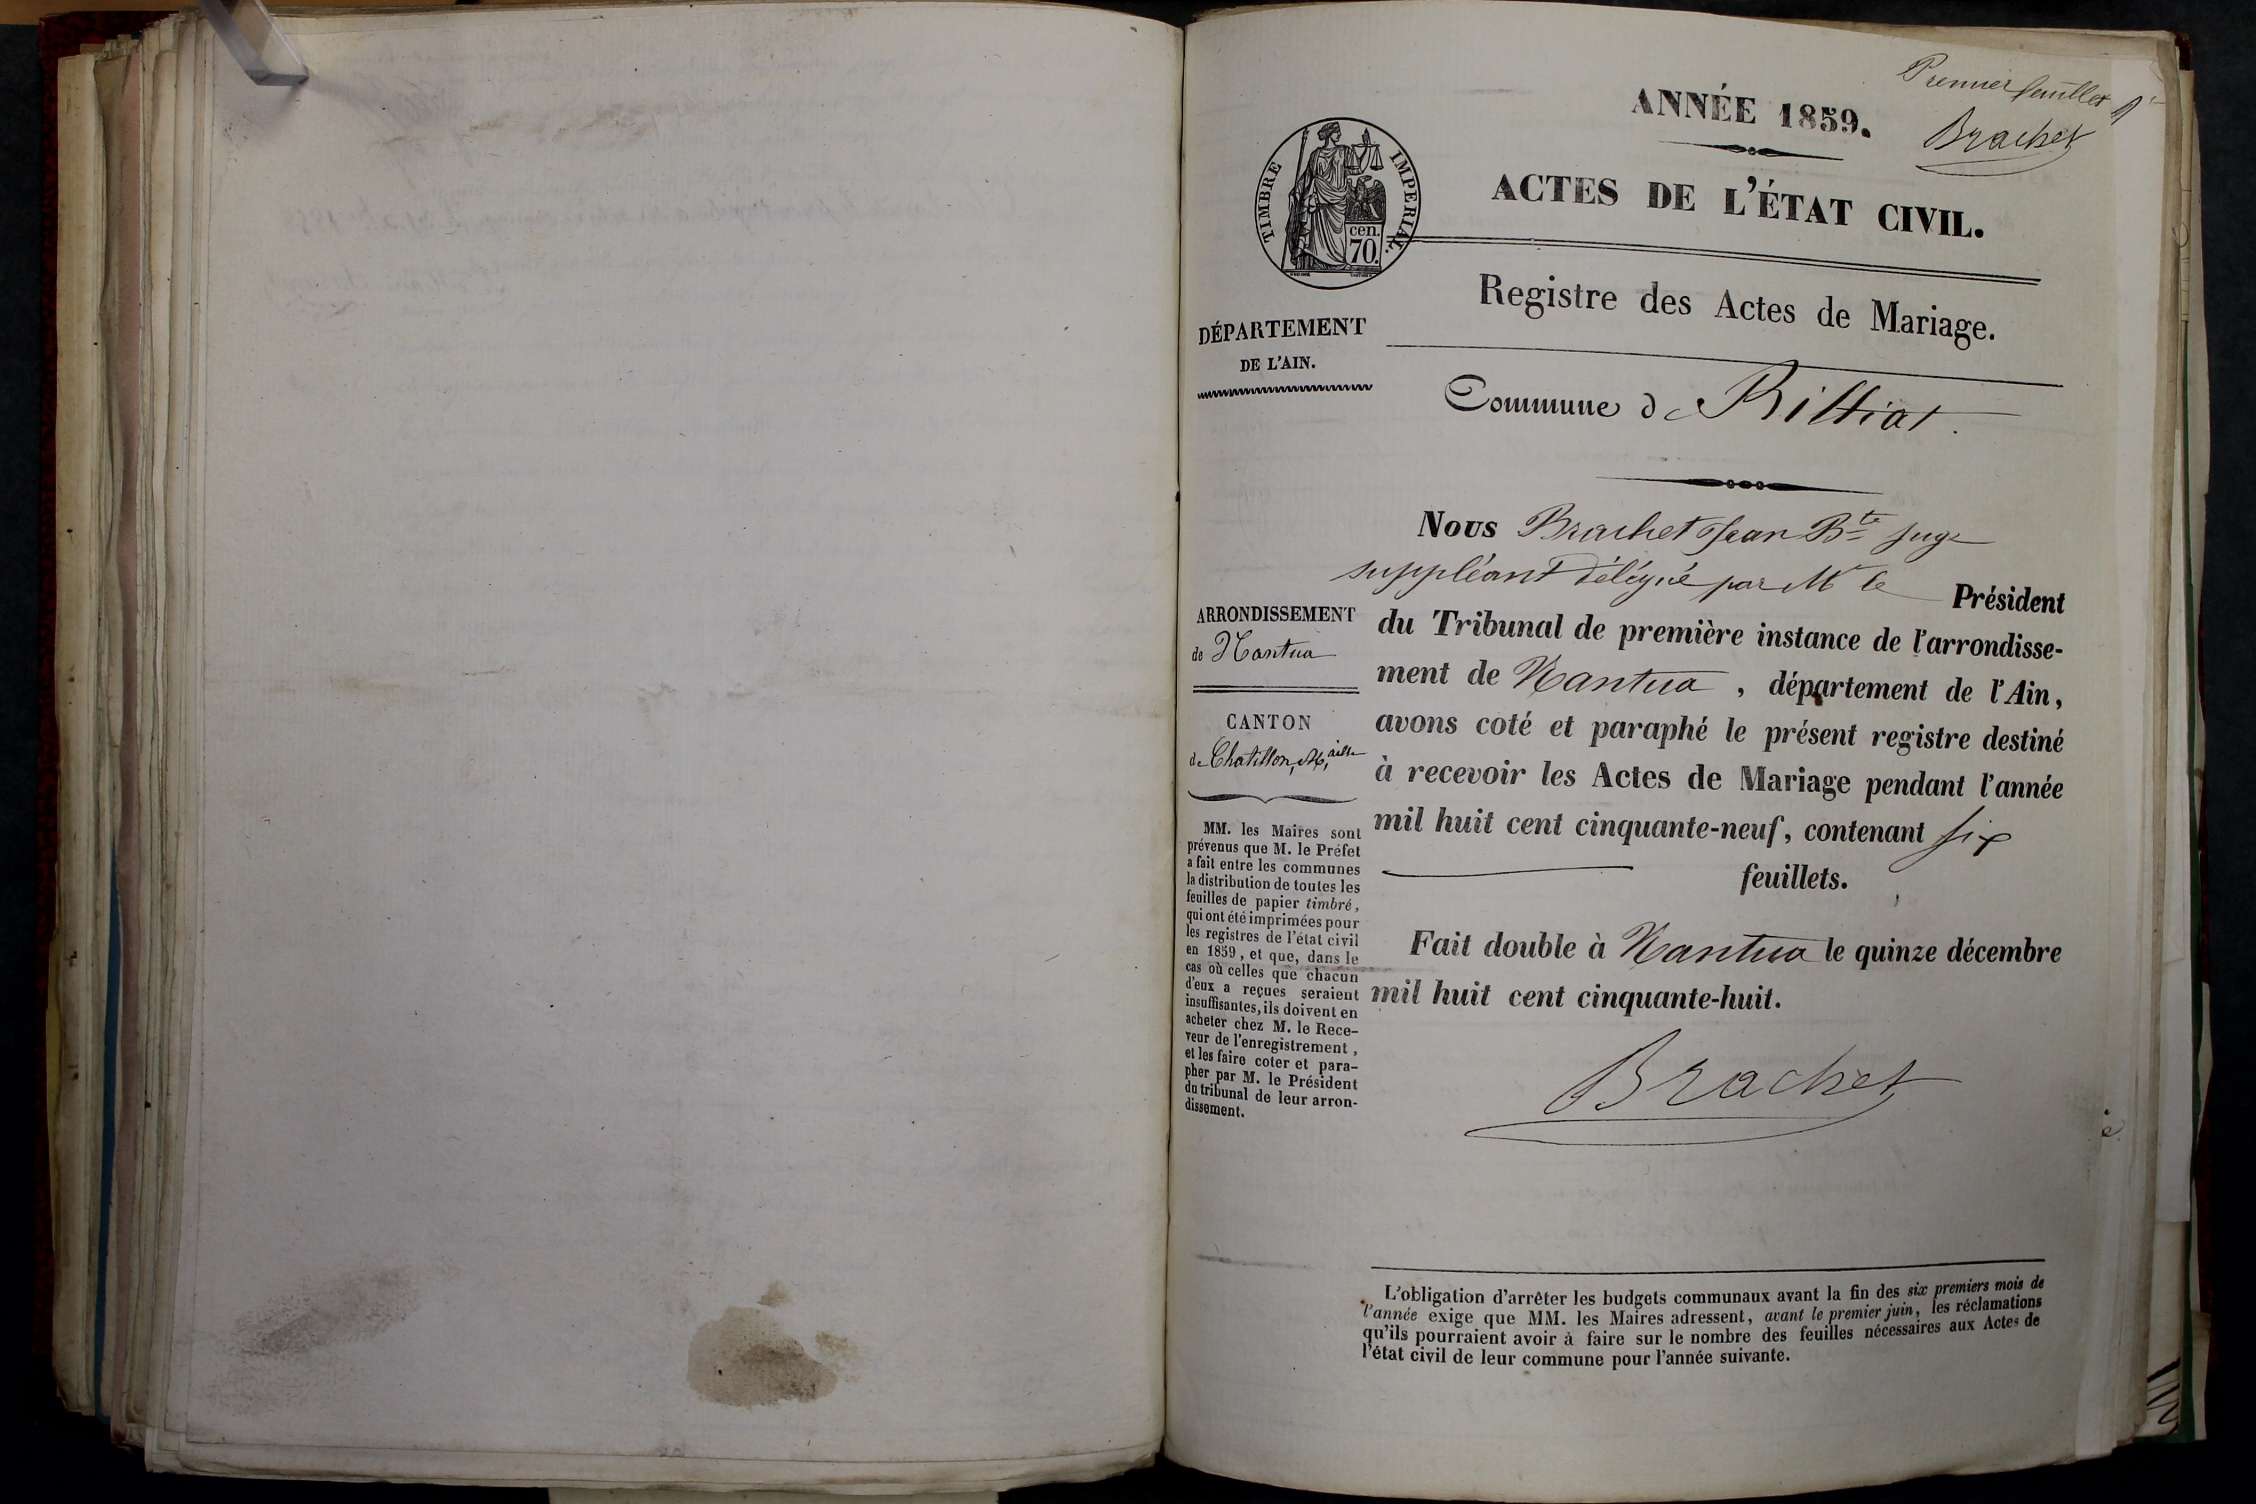 Premier feuillet
Brachet
ANNÉE 1859.
ACTES DE L'ÉTAT CIVIL.
TIMBRE IMPERIAL.
cen.
70.
Registre des Actes de Mariage.
DÉPARTEMENT
DE L'AIN.
Commune de Billiat.
Nous Brachet Jean Bte juge
suppléant délégué par Mr le Président
du Tribunal de première instance de l'arrondisse-
ment de Nantua, département de l'Ain,
avons coté et paraphé le présent registre destiné
à recevoir les Actes de Mariage pendant l'année
mil huit cent cinquante-neuf, contenant six
feuillets.
Fait double à Nantua le quinze décembre
mil huit cent cinquante-huit.
Brachet
ARRONDISSEMENT
de Nantua
CANTON
de Chatillon, M, aille
MM. les Maires sont
prévenus que M. le Préfet
a fait entre les communes
la distribution de toutes les
feuilles de papier timbré,
qui ont été imprimées pour
les registres de l'état civil
en 1859, et que, dans le
cas où celles que chacun
d'eux a reçues seraient
insuffisantes, ils doivent en
acheter chez M. le Rece-
veur de l'enregistrement,
et les faire coter et para-
pher par M. le Président
du tribunal de leur arron-
dissement.
L'obligation d'arrêter les budgets communaux avant la fin des six premiers mois de
l'année exige que MM. les Maires adressent, avant le premier juin, les réclamations
qu'ils pourraient avoir à faire sur le nombre des feuilles nécessaires aux Actes de
l'état civil de leur commune pour l'année suivante.